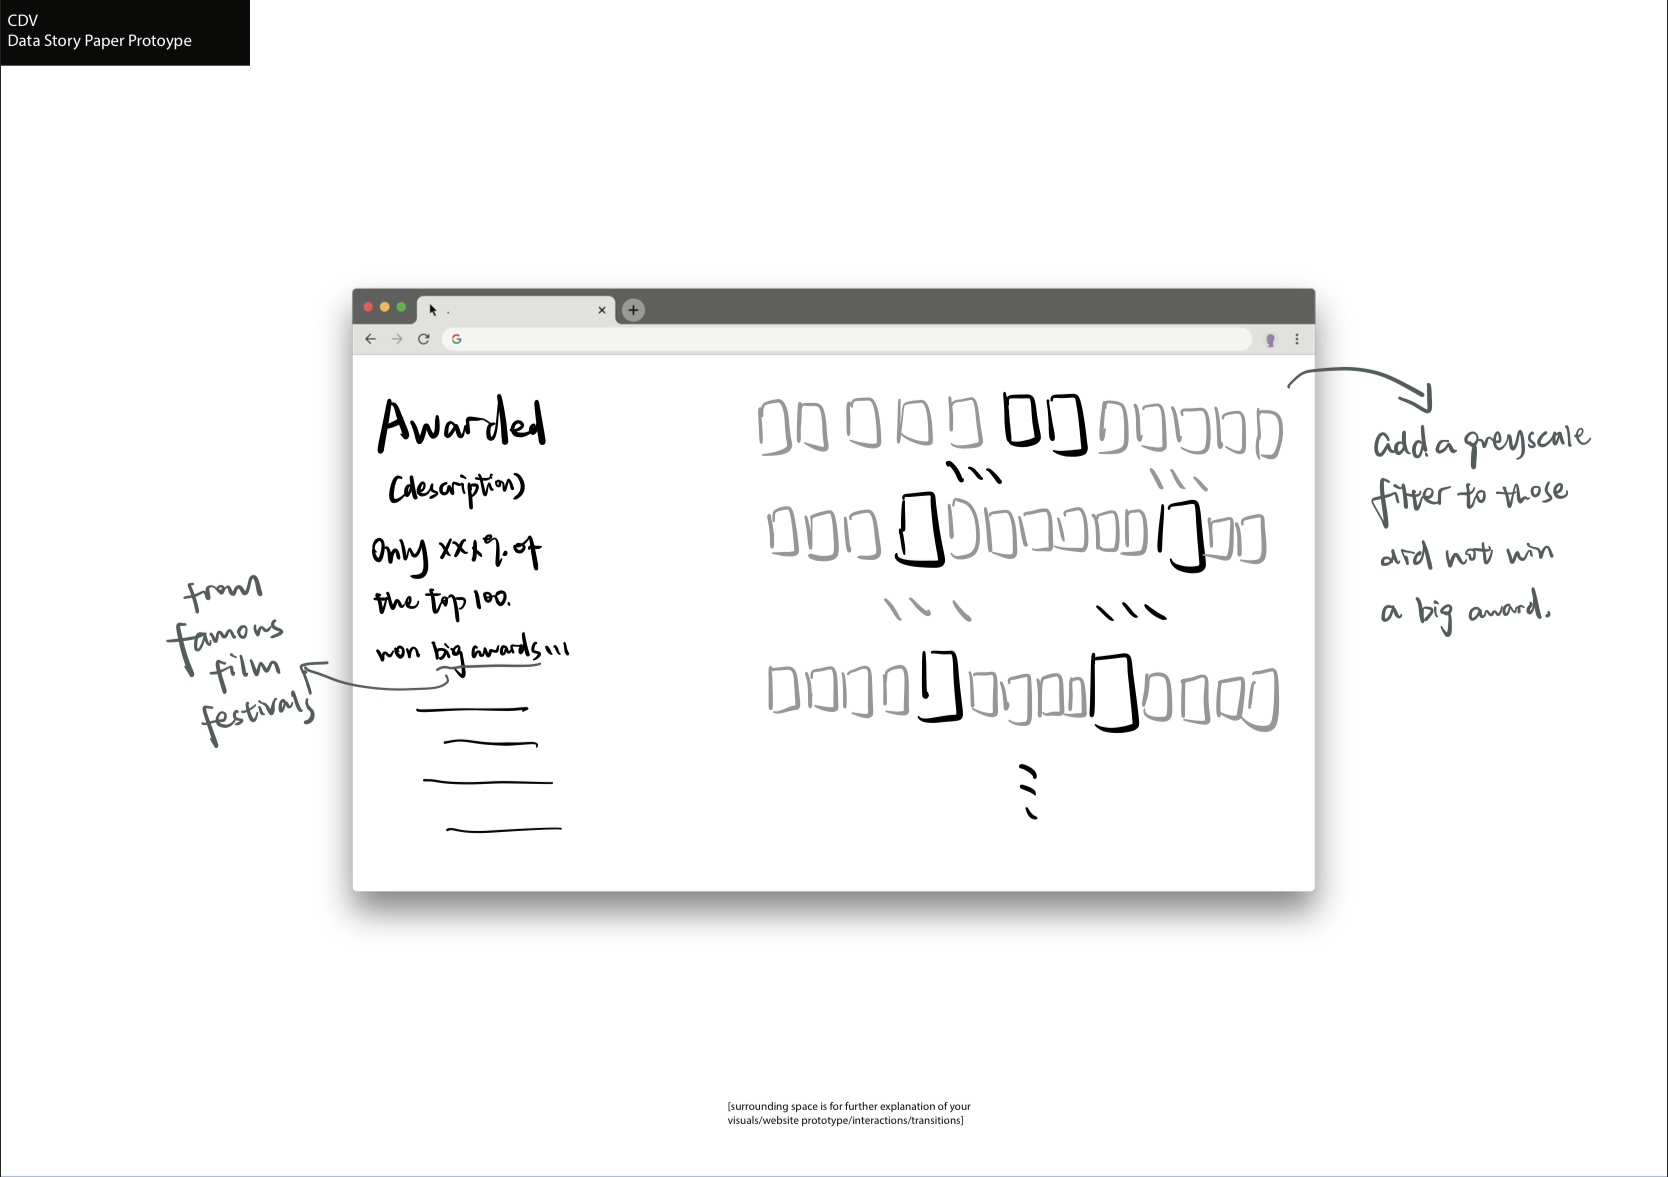 CDV
Data Story Paper Protoype
Awarded
(description)
Only xxx% of
the top 100.
won big awards...
from
famous
film
festivals
add a greyscale
filter to those
did not win
a big award.
[surrounding space is for further explanation of your
visuals/website prototype/interactions/transitions]